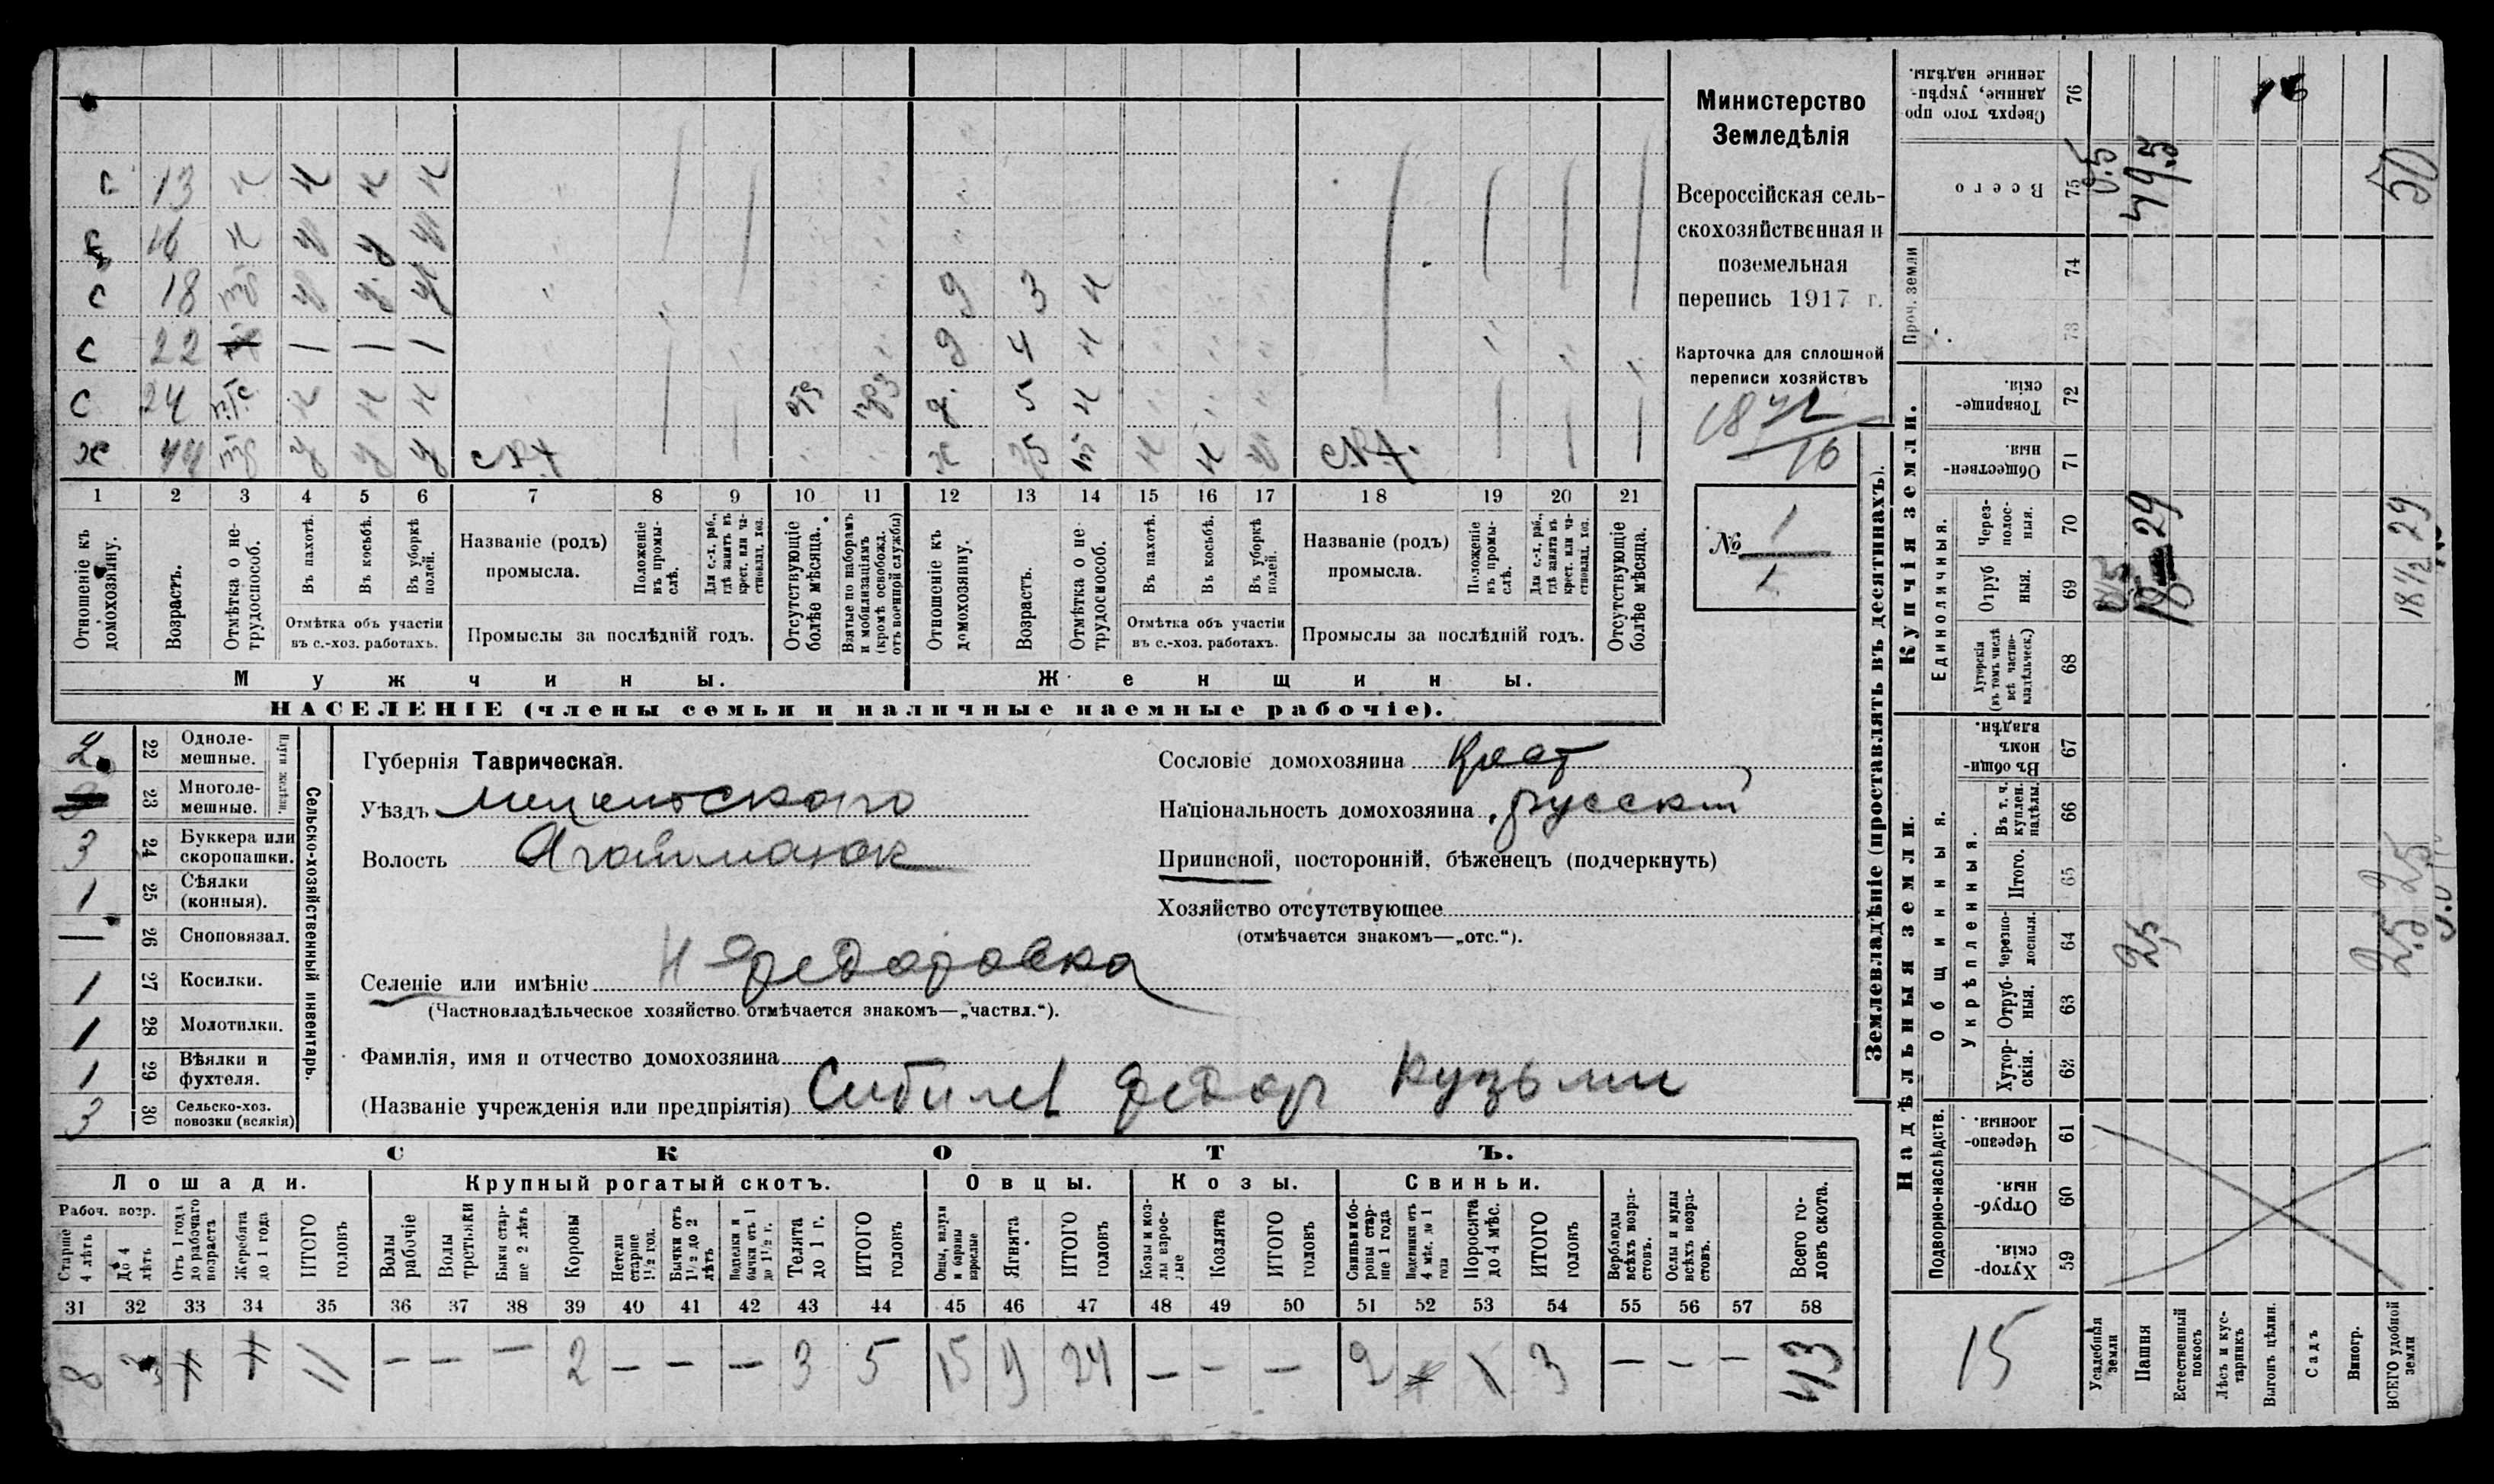 с 13 н н н н
с 16 н у у у
с 18 тр у у у д 3 н
с 22 — — — д 4 н
с 24 н н н д 5 н
ж 44 у у у ж н н
1 2 3 4 5 6 7 8 9 10 11 12 13 14 15 16 17 18 19 20 21
Отношеніе къ домохозяину.
Возрастъ.
Отмѣтка о нетрудоспособ.
Въ пахотѣ.
Въ косьбѣ.
Въ уборкѣ полей.
Отмѣтка объ участіи
въ с.-хоз. работахъ.
Названіе (родъ)
промысла.
Положеніе въ промыслѣ.
Для с.-х. раб., гдѣ занятъ въ крест. или частновлад. хоз.
Промыслы за послѣдній годъ.
Отсутствующіе болѣе мѣсяца.
Взятые по наборамъ и мобилизаціямъ (кромѣ освобожд. отъ военной службы)
Отношеніе къ домохозяину.
Возрастъ.
Отмѣтка о нетрудоспособ.
Въ пахотѣ.
Въ косьбѣ.
Въ уборкѣ полей.
Отмѣтка объ участіи
въ с.-хоз. работахъ.
Названіе (родъ)
промысла.
Положеніе въ промыслѣ.
Для с.-х. раб., гдѣ занята въ крест. или частновлад. хоз.
Промыслы за послѣдній годъ.
Отсутствующіе болѣе мѣсяца.
Мужчины. Женщины.
НАСЕЛЕНІЕ (члены семьи и наличные наемные рабочіе).
Министерство
Земледѣлія
Всероссійская сель-
скохозяйственная и
поземельная
перепись 1917 г.
Карточка для сплошной
переписи хозяйствъ
16
№ 1
1
Сельско-хозяйственный инвентарь.
Плуги желѣзн.
2 22 Одноле-
мешные.
23 Многоле-
мешные.
3 24 Буккера или
скоропашки.
1 25 Сѣялки
(конныя).
— 26 Сноповязал.
1 27 Косилки.
1 28 Молотилки.
1 29 Вѣялки и
фухтеля.
3 30 Сельско-хоз.
повозки (всякія)
Губернія Таврическая.
Уѣздъ Мелитопольскаго
Волость Агайманск
Селеніе или имѣніе Н Федоровка
(Частновладѣльческое хозяйство отмѣчается знакомъ—„частвл.“).
Фамилія, имя и отчество домохозяина
(Названіе учрежденія или предпріятія) Сибилев Федор Кузьми
Сословіе домохозяина Крест
Національность домохозяина русскій
Приписной, посторонній, бѣженецъ (подчеркнуть)
Хозяйство отсутствующее
(отмѣчается знакомъ—„отс.“).
СКОТЪ.
Лошади. Крупный рогатый скотъ. Овцы. Козы. Свиньи.
Рабоч. возр.
Старше 4 лѣтъ
До 4 лѣтъ
Отъ 1 года до рабочаго возраста
Жеребята до 1 года
ИТОГО головъ
Волы рабочіе
Волы третьяки
Быки старше 2 лѣтъ
Коровы
Нетели старше 1½ год.
Бычки отъ 1½ до 2 лѣтъ
Подтелки и бычки отъ 1 до 1½ г.
Телята до 1 г.
ИТОГО головъ
Овцы, валухи и бараны взрослые
Ягнята
ИТОГО головъ
Козы и козлы взрослые
Козлята
ИТОГО головъ
Свиньи и боровы старше 1 года
Подсвинки отъ 4 мѣс. до 1 года
Поросята до 4 мѣс.
ИТОГО головъ
Верблюды всѣхъ возрастовъ.
Ослы и мулы всѣхъ возрастовъ.
Всего головъ скота.
31 32 33 34 35 36 37 38 39 40 41 42 43 44 45 46 47 48 49 50 51 52 53 54 55 56 57 58
8 3 11 — — — 2 — — — 3 5 15 9 24 — — — 2 1 3 — — — 43
Землевладѣніе (проставлять въ десятинахъ).
Надѣльныя земли.
Купчія земли.
Подворно-наслѣдств.
Общинныя.
Укрѣпленныя.
Единоличныя.
Проч. земли
Хуторскія. 59
Отрубныя. 60
Черезполосныя. 61
Хуторскія. 62
Отрубныя. 63
Черезполосныя. 64
Итого. 65
Въ т. ч. куплен. надѣлы. 66
Въ общинномъ владѣн. 67
Хуторскія (въ томъ числѣ всѣ частновладѣльческ.) 68
Отрубныя. 69
Черезполосныя. 70
Общественныя. 71
Товарищескія. 72
73
74
Всего 75
Сверхъ того проданные, укрѣпленные надѣлы. 76
15
Усадебныя земли 0.5
Пашня 2,5 29 49.5
Естественный покосъ
Лѣсъ и кустарникъ
Выгонъ цѣлин.
Садъ
Виногр.
ВСЕГО удобной земли 2.5 2.5 18½ 29 50